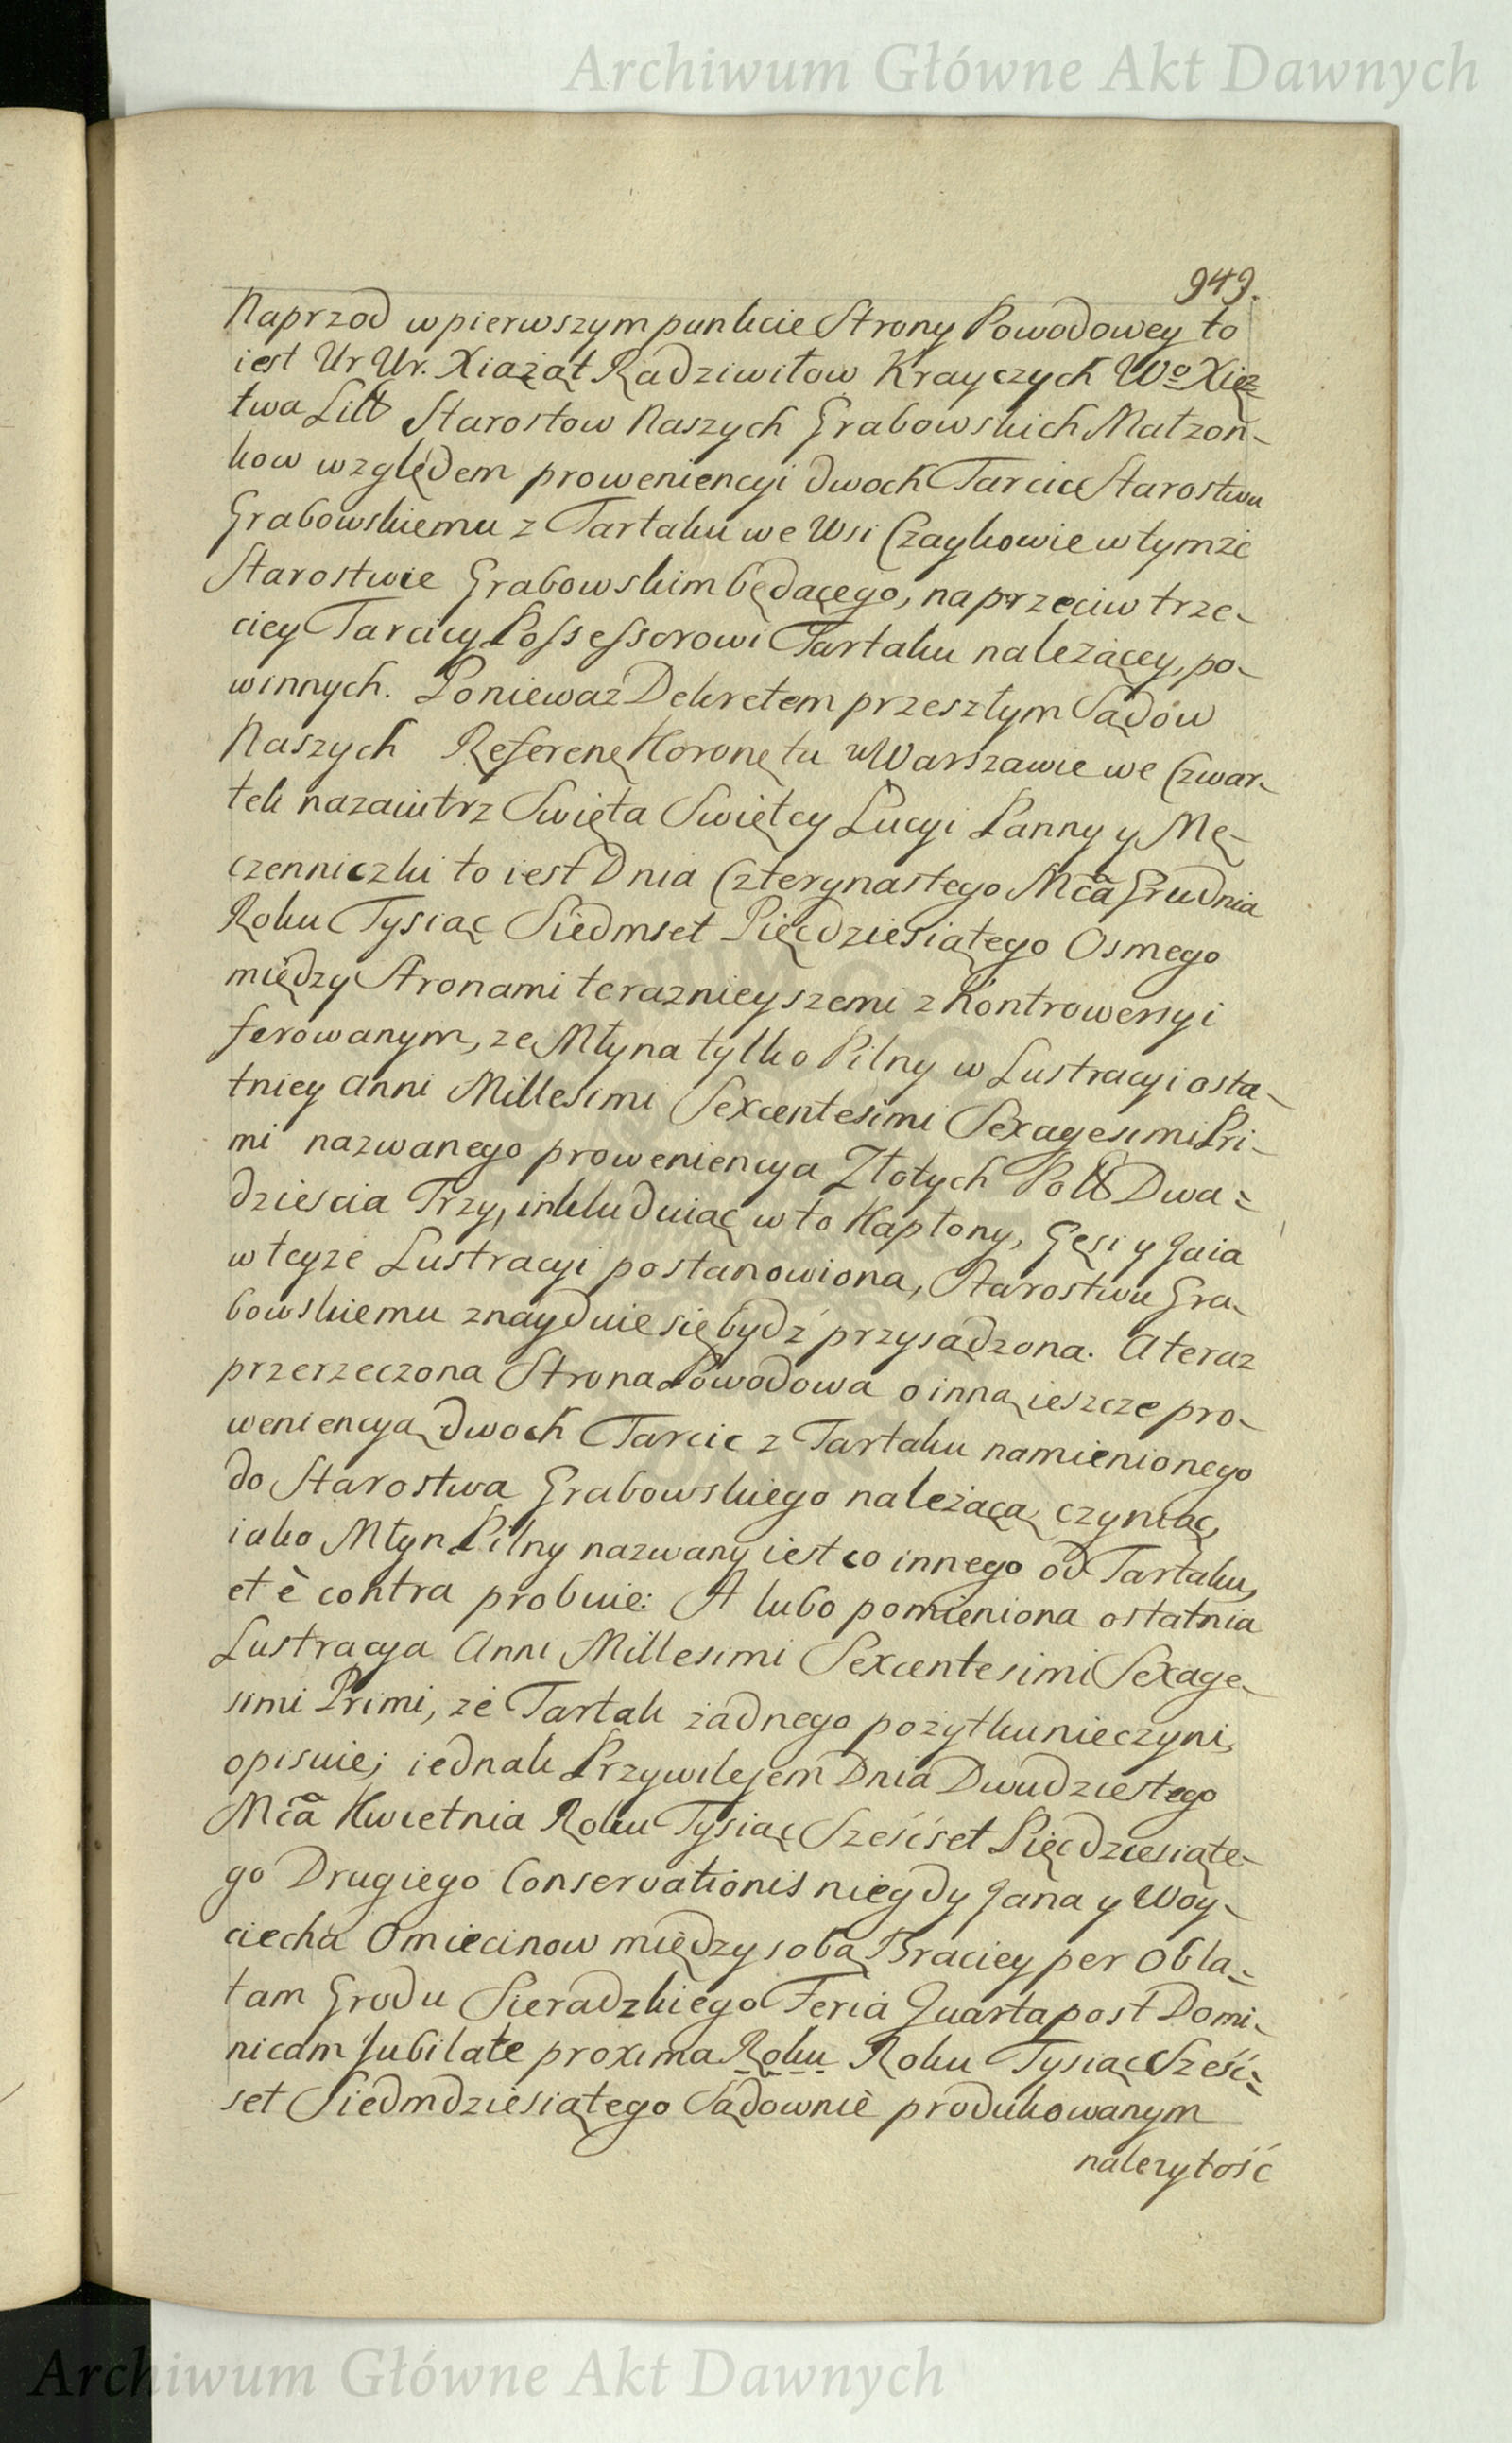 Archiwum Główne Akt Dawnych
949.
Naprzod w pierwszym punkcie Strony Powodowey to
iest Ur Ur. Xiążąt Radziwiłow Krayczych Wo Xięz
twa Litt Starostow Naszych Grabowskich Małzon-
kow względem proweniencyi dwoch Tarcic Starostwu
Grabowskiemu z Tartaku we Wsi Czaykowie w tymze
Starostwie Grabowskim będącego, naprzeciw trze-
ciey Tarcicy Possessorowi Tartaku należącey, po-
winnych. Ponieważ Dekretem przeszłym Sądów
Naszych Referen Koron tu w Warszawie we Czwar-
tek nazaiutrz Swięta Swiętey Lucyi Panny y Mę-
czenniczki to iest Dnia Czterynastego Mca Grudnia
Roku Tysiąc Siedmset Pięcdziesiątego Osmego
między Stronami teraznieyszemi z Kontrowersyi
ferowanym, ze Młyna tylko Pilny w Lustracyi osta-
tniey Anni Millesimi Sexcentesimi Sexagesimi Pri-
mi nazwanego proweniencya Złotych Poll Dwa-
dziescia Trzy, inkluduiąc w to Kapłony, Gęsi y Jaia
w teyze Lustracyi postanowiona, Starostwu Gra-
bowskiemu znayduie się bydź przysądzona. A teraz
przerzeczona Strona Powodowa o inną ieszcze pro-
weniencyą dwoch Tarcic z Tartaku namienionego
do Starostwa Grabowskiego należącą czyniąc,
iako Młyn Pilny nazwany iest co innego od Tartaku,
et è contra probuie: A lubo pomieniona ostatnia
Lustracya Anni Millesimi Sexcentesimi Sexage-
simi Primi, ze Tartak żadnego pożytku nieczyni,
opisuie; iednak Przywilejem Dnia Dwudziestego
Mca Kwietnia Roku Tysiąc Sześćset Pięcdziesiąte-
go Drugiego Conservationis niegdy Jana y Woy-
ciecha Omiecinow między sobą Braciey per Obla-
tam Grodu Sieradzkiego Feria Quarta post Domi-
nicam Jubilate proxima Roku Roku Tysiąc Sześć-
set Siedmdziesiątego Sądownie produkowanym
nalezytość
Archiwum Główne Akt Dawnych